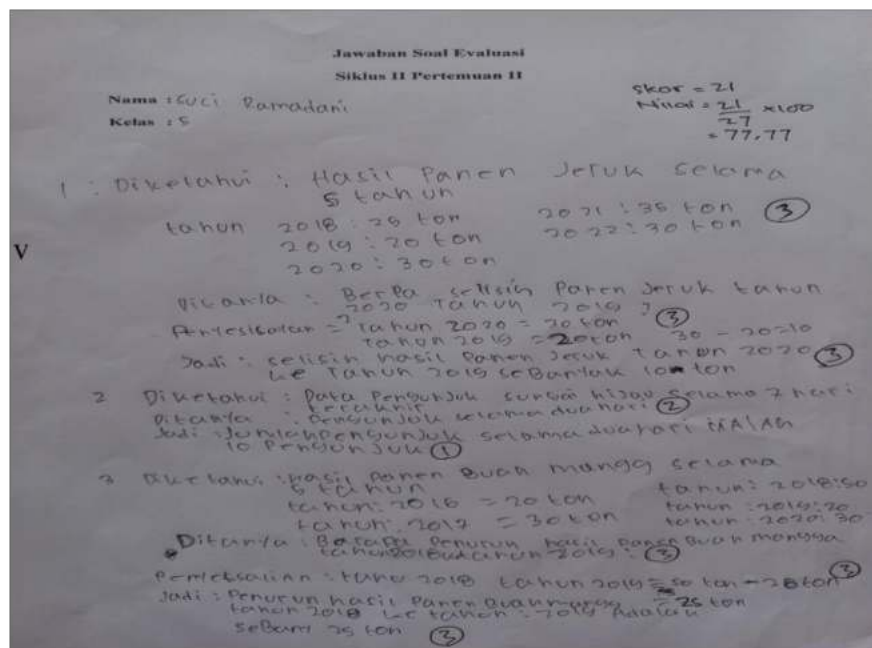 Jawaban Soal Evaluasi
Siklus II Pertemuan II
Nama : Suci Ramadani
Kelas : 5
Skor = 21
Nilai = 21/27 x100
= 77,77
1 : Diketahui : Hasil Panen Jeruk selama
5 tahun
tahun 2018 : 25 ton 2021 : 35 ton ③
2019 : 20 ton 2022 : 30 ton
2020 : 30 ton
V
Ditanya : Berpa selisih Panen Jeruk tahun
2020 Tahun 2019 ?
= Tahun 2020 = 30 ton ③
Tahun 2019 = 20 ton 30 - 20=10
Jadi : selisih hasil Panen Jeruk Tahun 2020 ③
ke Tahun 2019 seBanyak 10 ton
2 Diketahui : Data Pengunjuk sungai hijau selama 7 hari
terakhir
Ditanya : Pengunjuk selama dua hari ②
Jadi : Jumlah Pengunjuk selama dua hari
10 Pengunjuk ①
3 : Hasil Panen Buah mangg selama
5 tahun tahun : 2018 : 50
tahun : 2016 = 20 ton tahun : 2019 :
tahun : 2017 = 30 ton tahun : 2020 : 30
Ditanya : Berapa Penurun hasil Panen Buah mangga
tahun 2019 : ③
: 2018 tahun 2019 = 50 ton - ③
Jadi : Penurun hasil Panen = 25 ton
tahun 2018 ke tahun : 2019 Adalah
25 ton ③